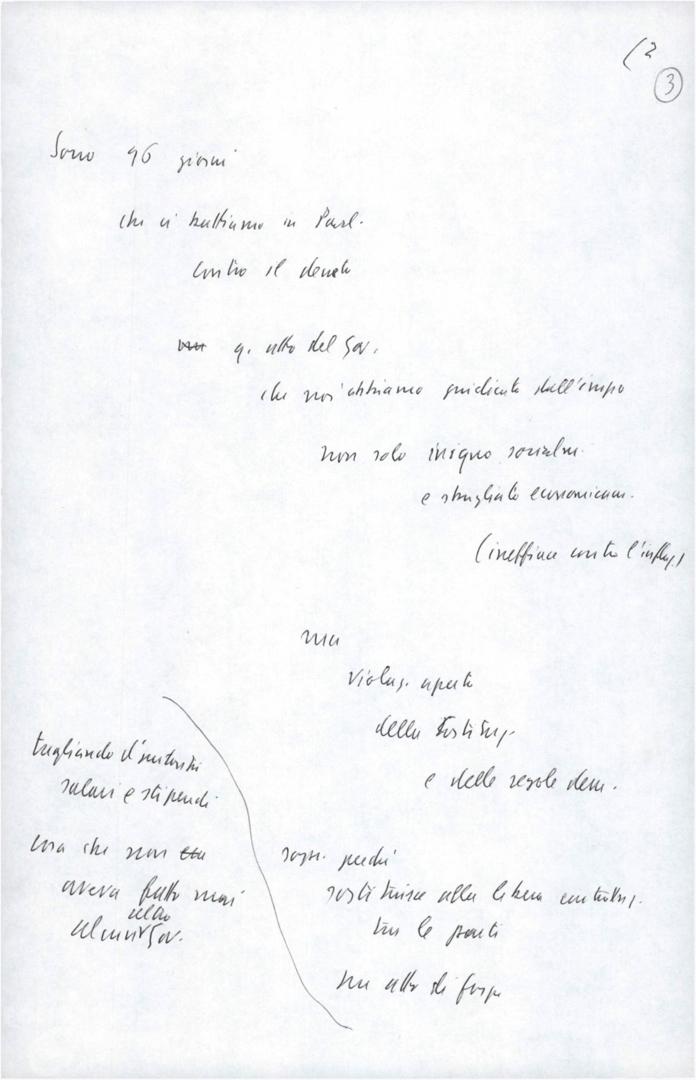 (2
3
Sono 96 giorni
che ci battiamo in Parl.
contro il decreto
q. atto del Gov.
che noi abbiamo giudicato dall'inizio
non solo iniquo socialm.
e sbagliato economicam.
(inefficace contro l'inflaz.)
ma
violaz. aperta
della Costituz.
e delle regole dem.
tagliando d'autorità
salari e stipendi
cosa che non
aveva fatto mai
alcun altro Gov.
sopr. perché
sostituisce alla libera contrattaz.
tra le parti
un atto di forza